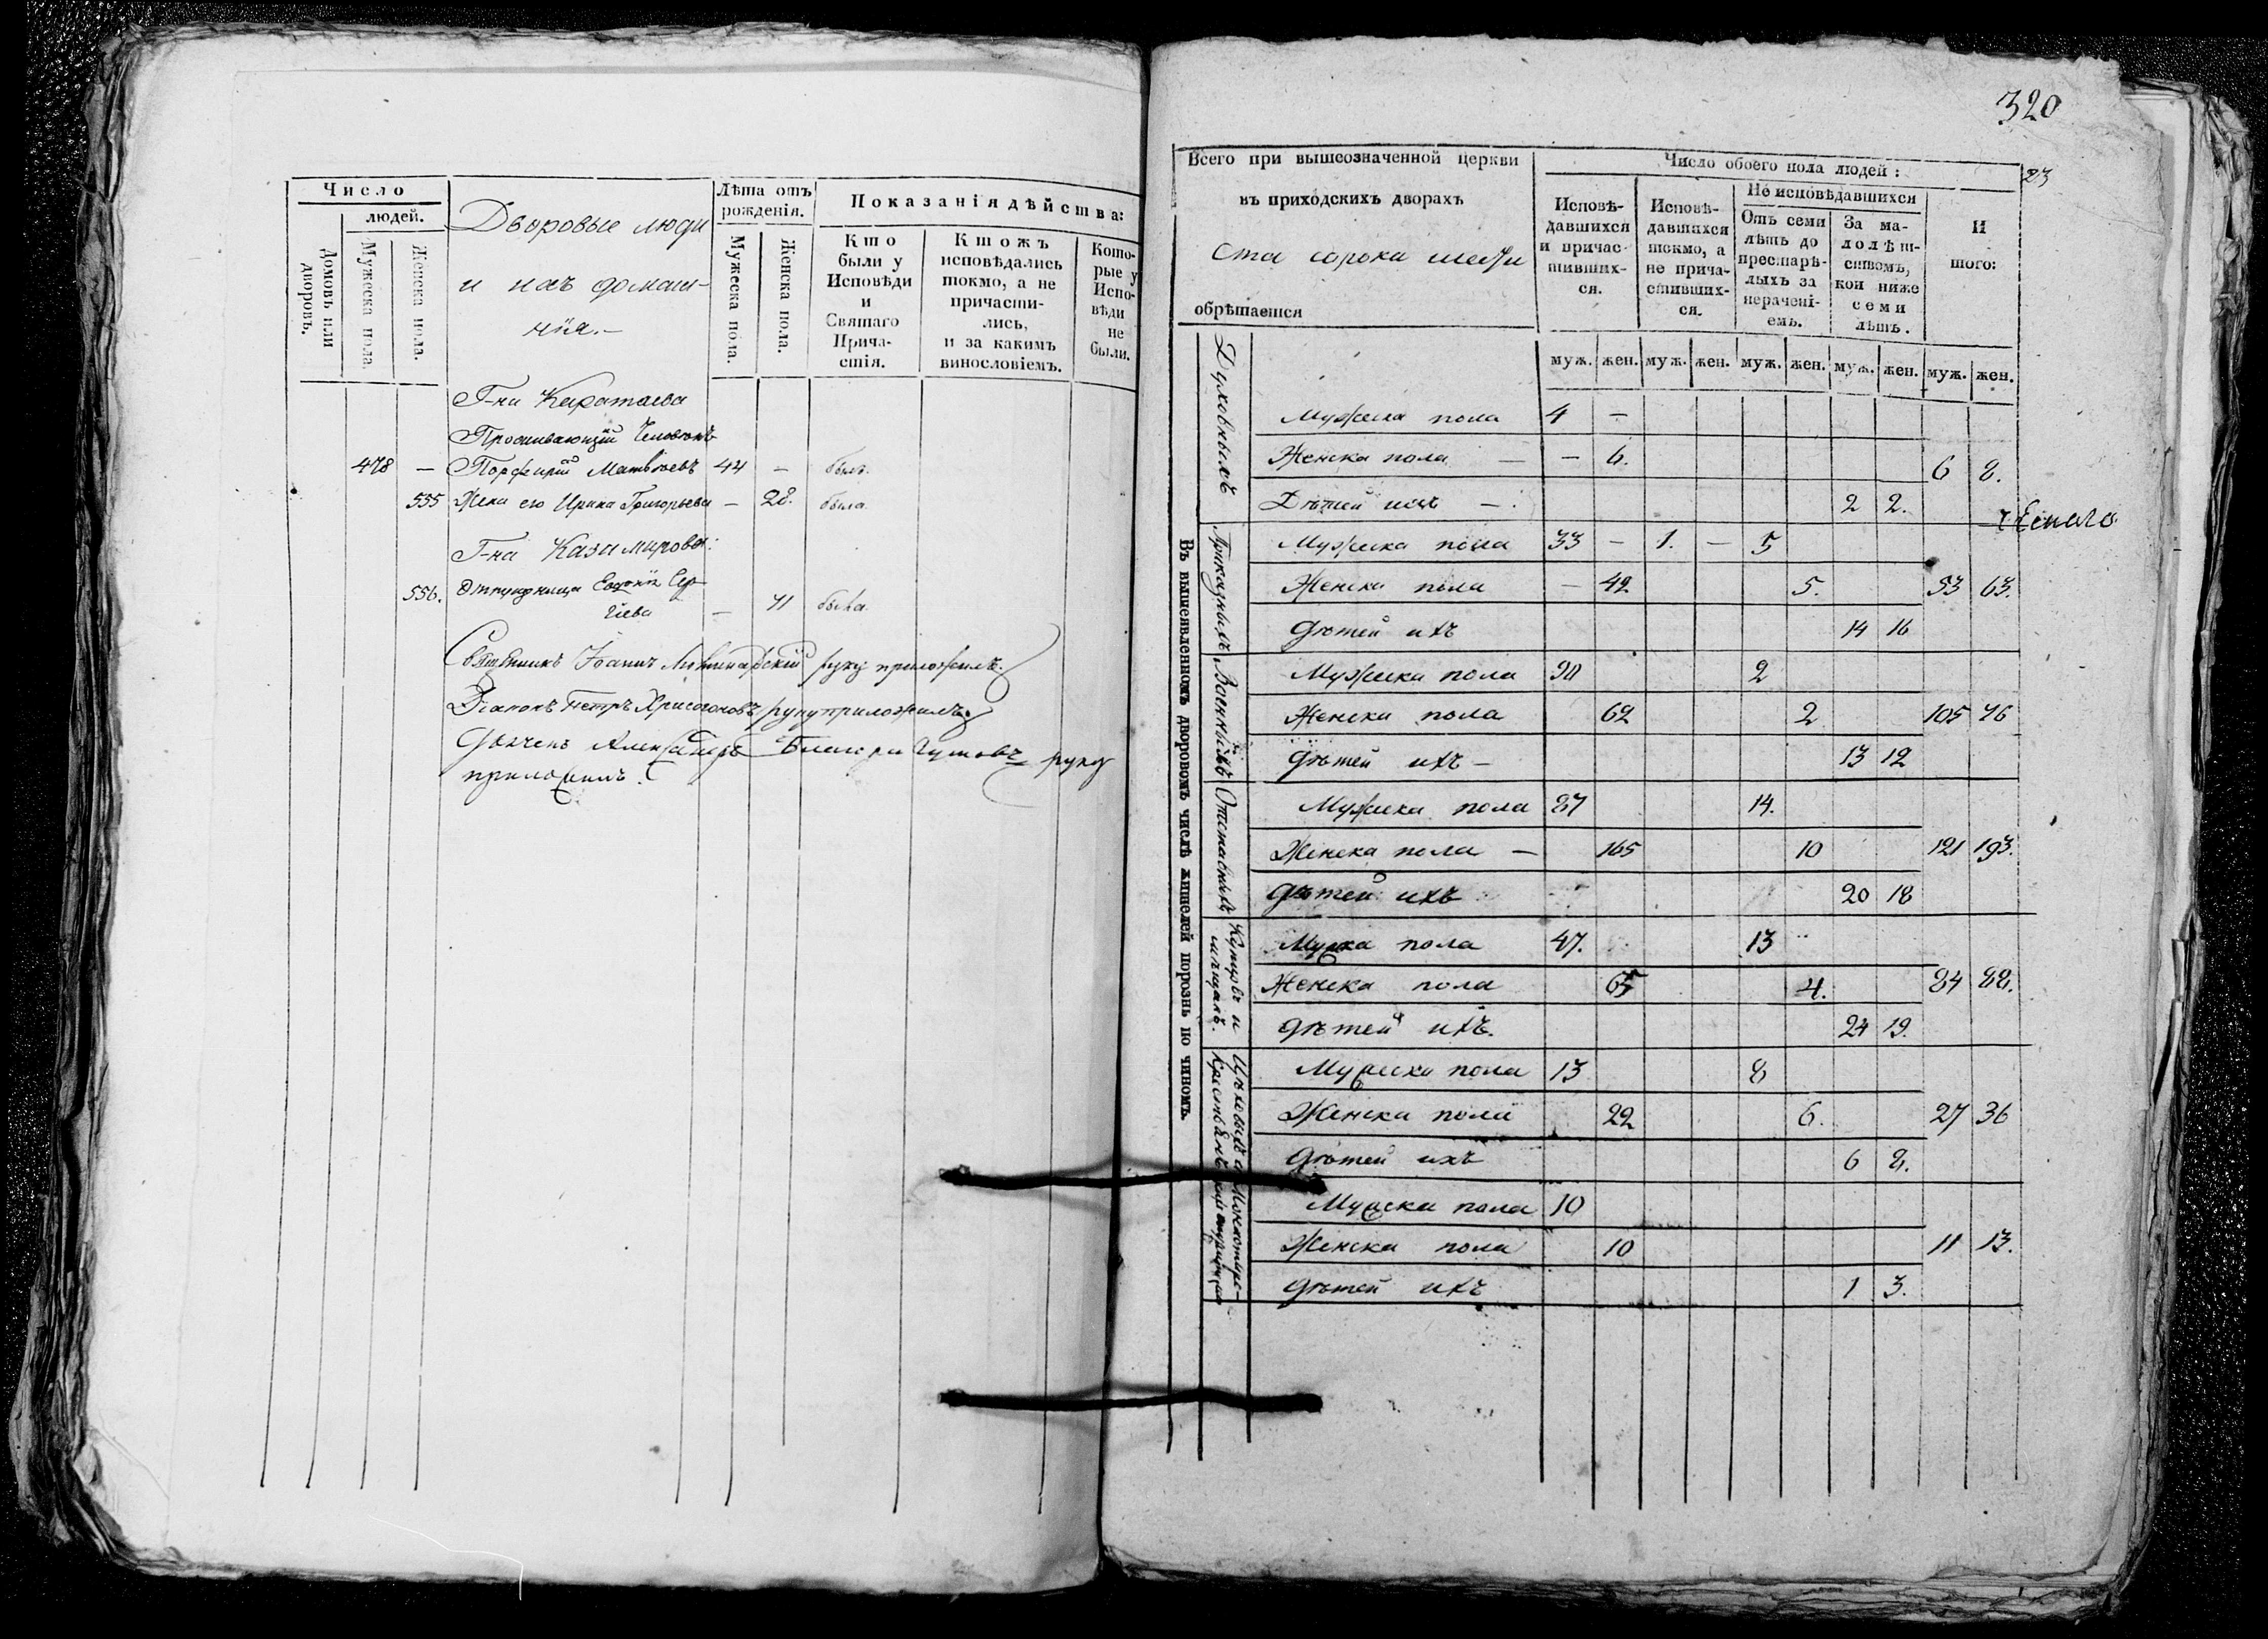 Число
людей.
Домовъ или дворовъ.
Мужеска пола
Женска пола.
Дворовые люди
и ихъ домаш-
нія.—
Лѣта отъ
рожденія.
Мужеска пола.
Женска пола.
Показанія дѣйства:
Кто
были у
Исповѣди
и
Святаго
Прича-
стія.
Ктожъ
исповѣдались
токмо, а не
причасти-
лись,
и за какимъ
винословіемъ.
Кото-
рые у
Испо-
вѣди
не
были.
Г-на Каратаева
Проживающій Человѣкъ
478 — Порфирій Матвѣевъ 44 — былъ.
555 Жена его Ирина Григорьева — 28. была.
Г-на Казимирова:
556. Евдокія Сер-
гіева — 71 была.
Священникъ Іоаннъ руку приложилъ.
Діаконъ Петръ Хрисогоновъ руку приложилъ.
Дьячекъ Александръ руку
приложилъ.
320
23
Всего при вышеозначенной церкви
въ приходскихъ дворахъ
ста сорока шести
обрѣтается
Число обоего пола людей:
Исповѣ-
давшихся
и причас-
тивших-
ся.
Исповѣ-
давшихся
токмо, а
не прича-
стивших-
ся.
Не исповѣдавшихся
Отъ семи
лѣтъ до
престарѣ-
лыхъ за
нераченi-
емъ.
За ма-
лолѣт-
ствомъ,
кои ниже
семи
лѣтъ.
И
того:
муж. жен. муж. жен. муж. жен. муж. жен. муж. жен.
Въ вышеявленномъ дворовомъ числѣ жителей порознь по чиномъ.
Духовныхъ
Мужеска пола 4 —
Женска пола — — 6. 6 8.
Дѣтей ихъ — 2 2.
Приказныхъ
Мужеска пола 33 — 1. — 5
Женска пола — 42 5. 53 63.
Дѣтей ихъ 14 16
Военныхъ
Мужеска пола 90 2
Женска пола 62 2 105 76
Дѣтей ихъ — 13 12
Отставныхъ
Мужеска пола 87 14.
Женска пола — 165 10 121 193.
Дѣтей ихъ 20 18
Купцовъ и
мѣщанъ.
Мужска пола 47. 13
Женска пола 65 4. 84 88.
Дѣтей ихъ. 24 19.
Цѣховыхъ
Мужеска пола 13 8
Женска пола 22 6. 27 36
Дѣтей ихъ 6 8.
Крестьянъ
Мужска пола 10
Женска пола 10 11 13.
Дѣтей ихъ 1 3.